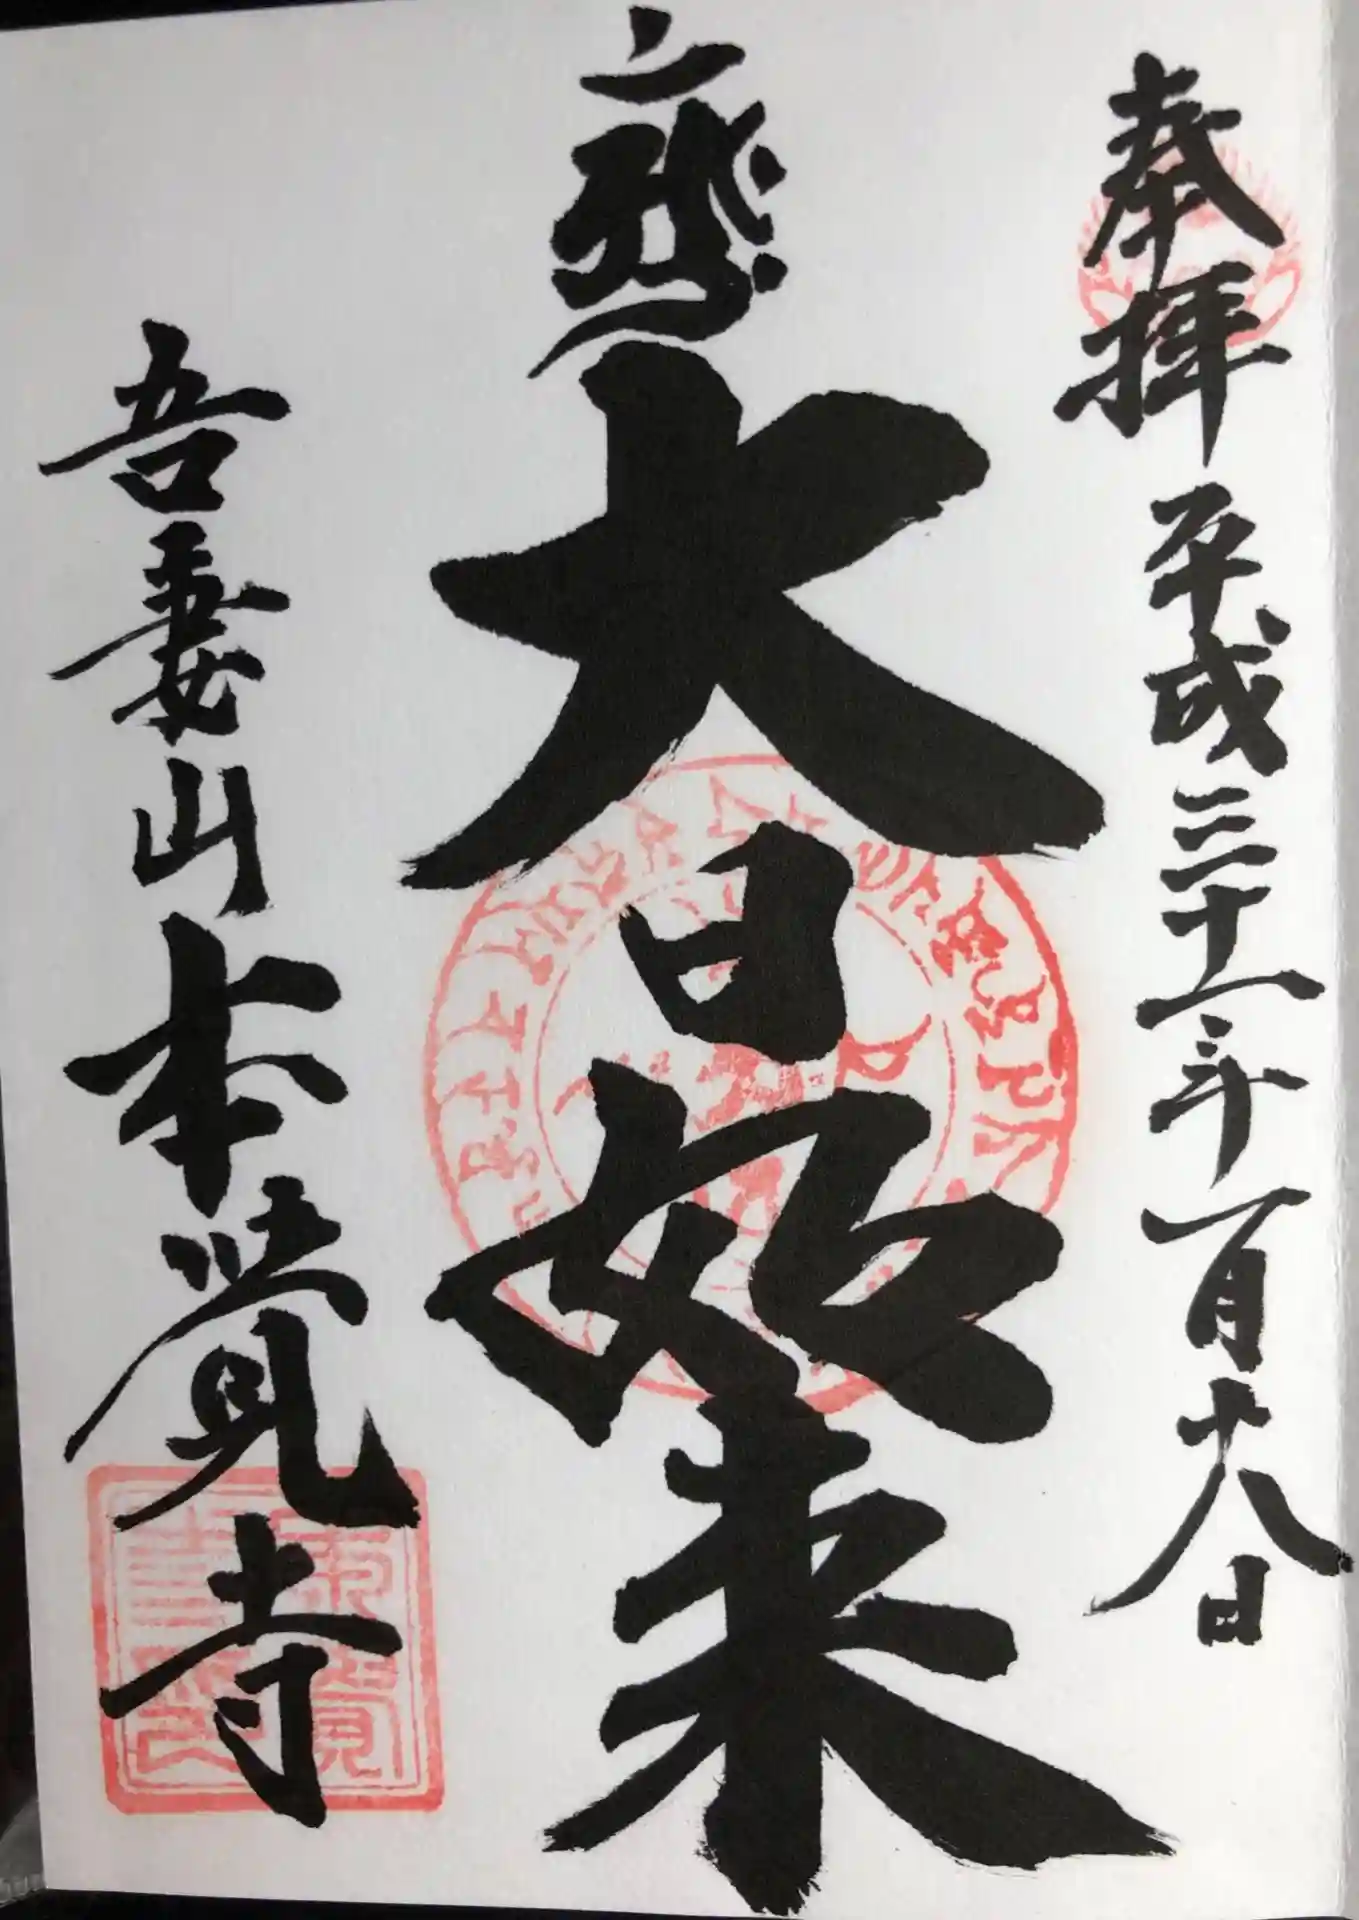 奉拝 平成三十一年一月十八日
大日如来
吾妻山 本覺寺